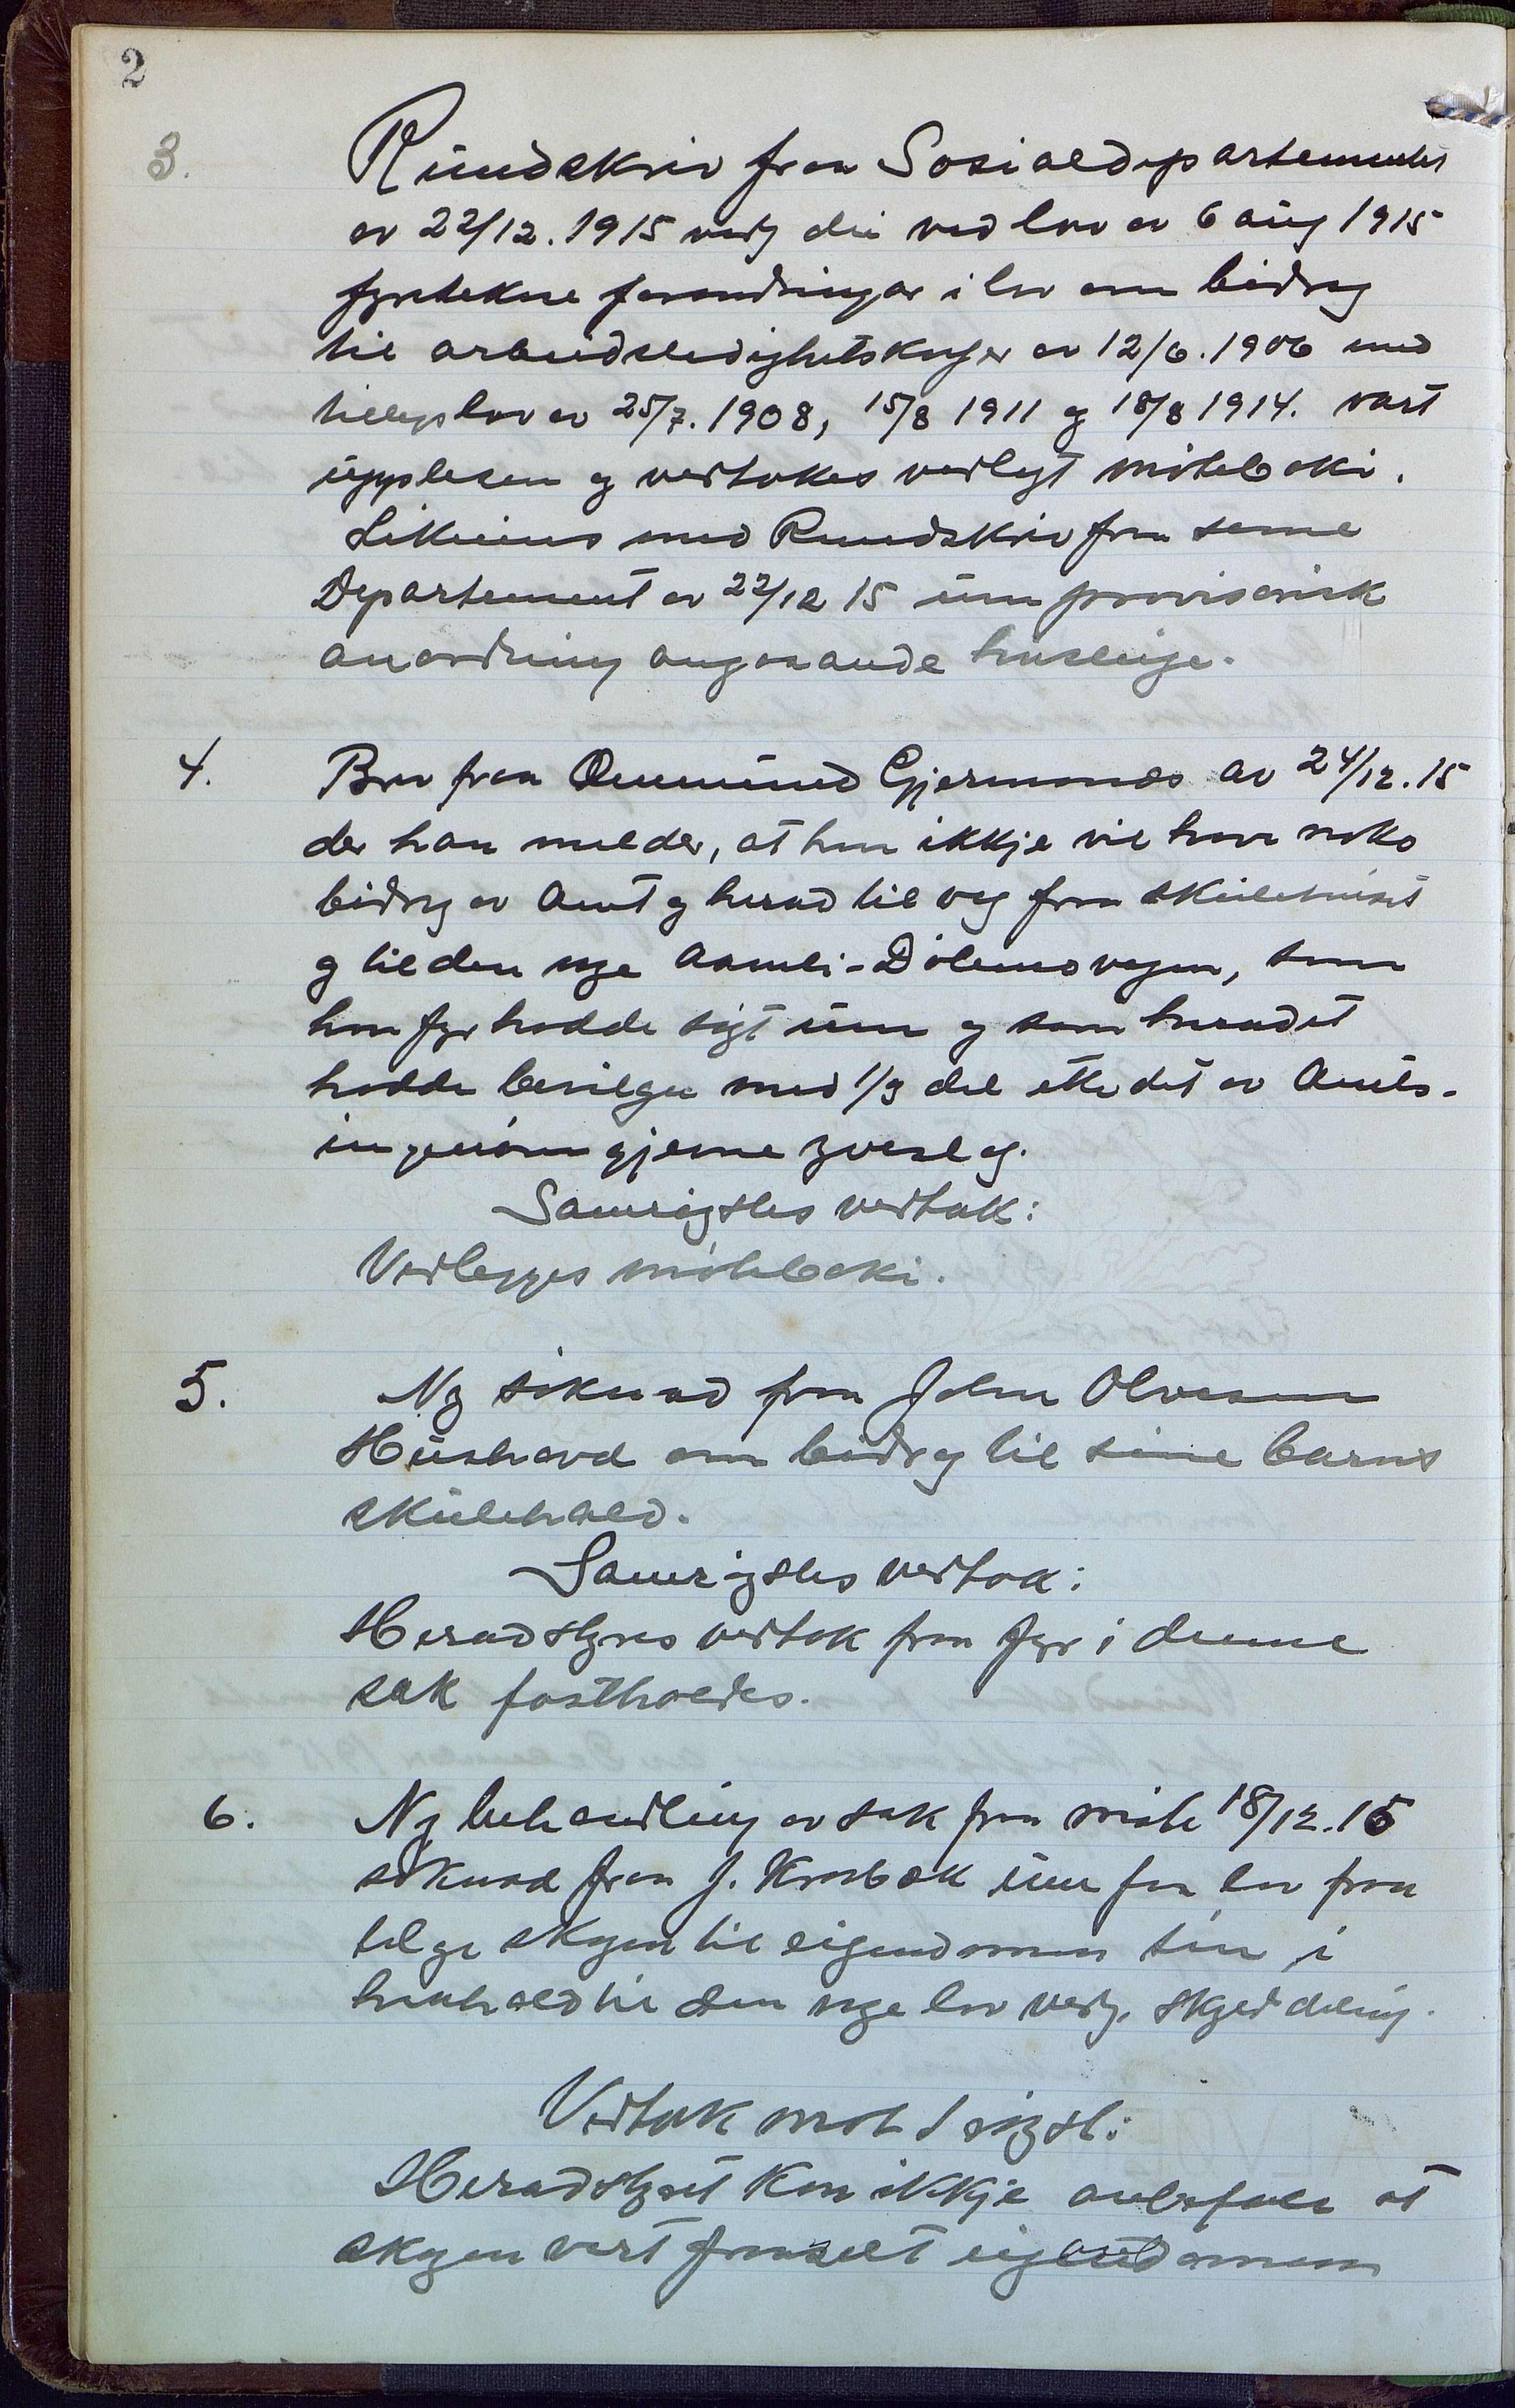 2
3. Rundskriv fraa Sosialdepartementet
av 22/12. 1915 vedk dei ved lov av 6 aug 1915
fyretekne forandringar i lov om bidrag
til arbeidsledighetskasser av 12/6. 1906 med
tilleggslov av 25/7. 1908, 15/8 1911 og 18/8 1914. vart
upplesen og vedtokes vedlegt møteboki.
Likeeins med Rundskriv fraa same
Departement av 22/12 15 um provisorisk
anordning angaaande husleige.
4. Brev fraa Ommund Gjermonnes av 24/12. 15
der han melder, at han ikkje vil have noko
bidrag av Amt og herad til veg fraa skulehuset
og til den nye Aamli-Dølemovegen, som
han fyr hadde søgt um og som heradet
hadde bevilget med 1/3 del etter det av Amts-
ingeniøren gjerne yverslag.
Samrøystes vedtak:
Vedlegges møteboki.
5. Ny søknad fraa John Olvesen
Hushovd om bidrag til sine barns
skulehald.
Samrøystes vedtak:
Heradstyres vedtak fraa fyr i denne
sak fastholdes.
6. Ny behandling av sak fraa møte 18/12. 15
søknad fraa J. Krosbæk um faa lov fraa
selge skogen til eigendomen sin i
henhold til den nye lov vedk. skylddeling.
Vedtak mot 1 røyst:
Heradstyret kan ikkje anbefale at
skogen vert fraaselt eigendomen